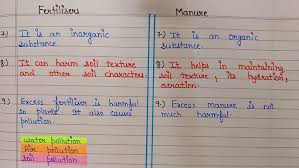 Fertilisers
Manure
7.) It is an inorganic
substance.
7.) It is an organic
substance.
8.) It can harm soil texture
and other soil characters.
8.) It helps in maintaining
soil texture, its hydration,
aeration.
9.) Excess fertiliser is harmful
to plants. It also causes
pollution.
9.) Excess Manure is not
much harmful.
water pollution
Air pollution
soil pollution